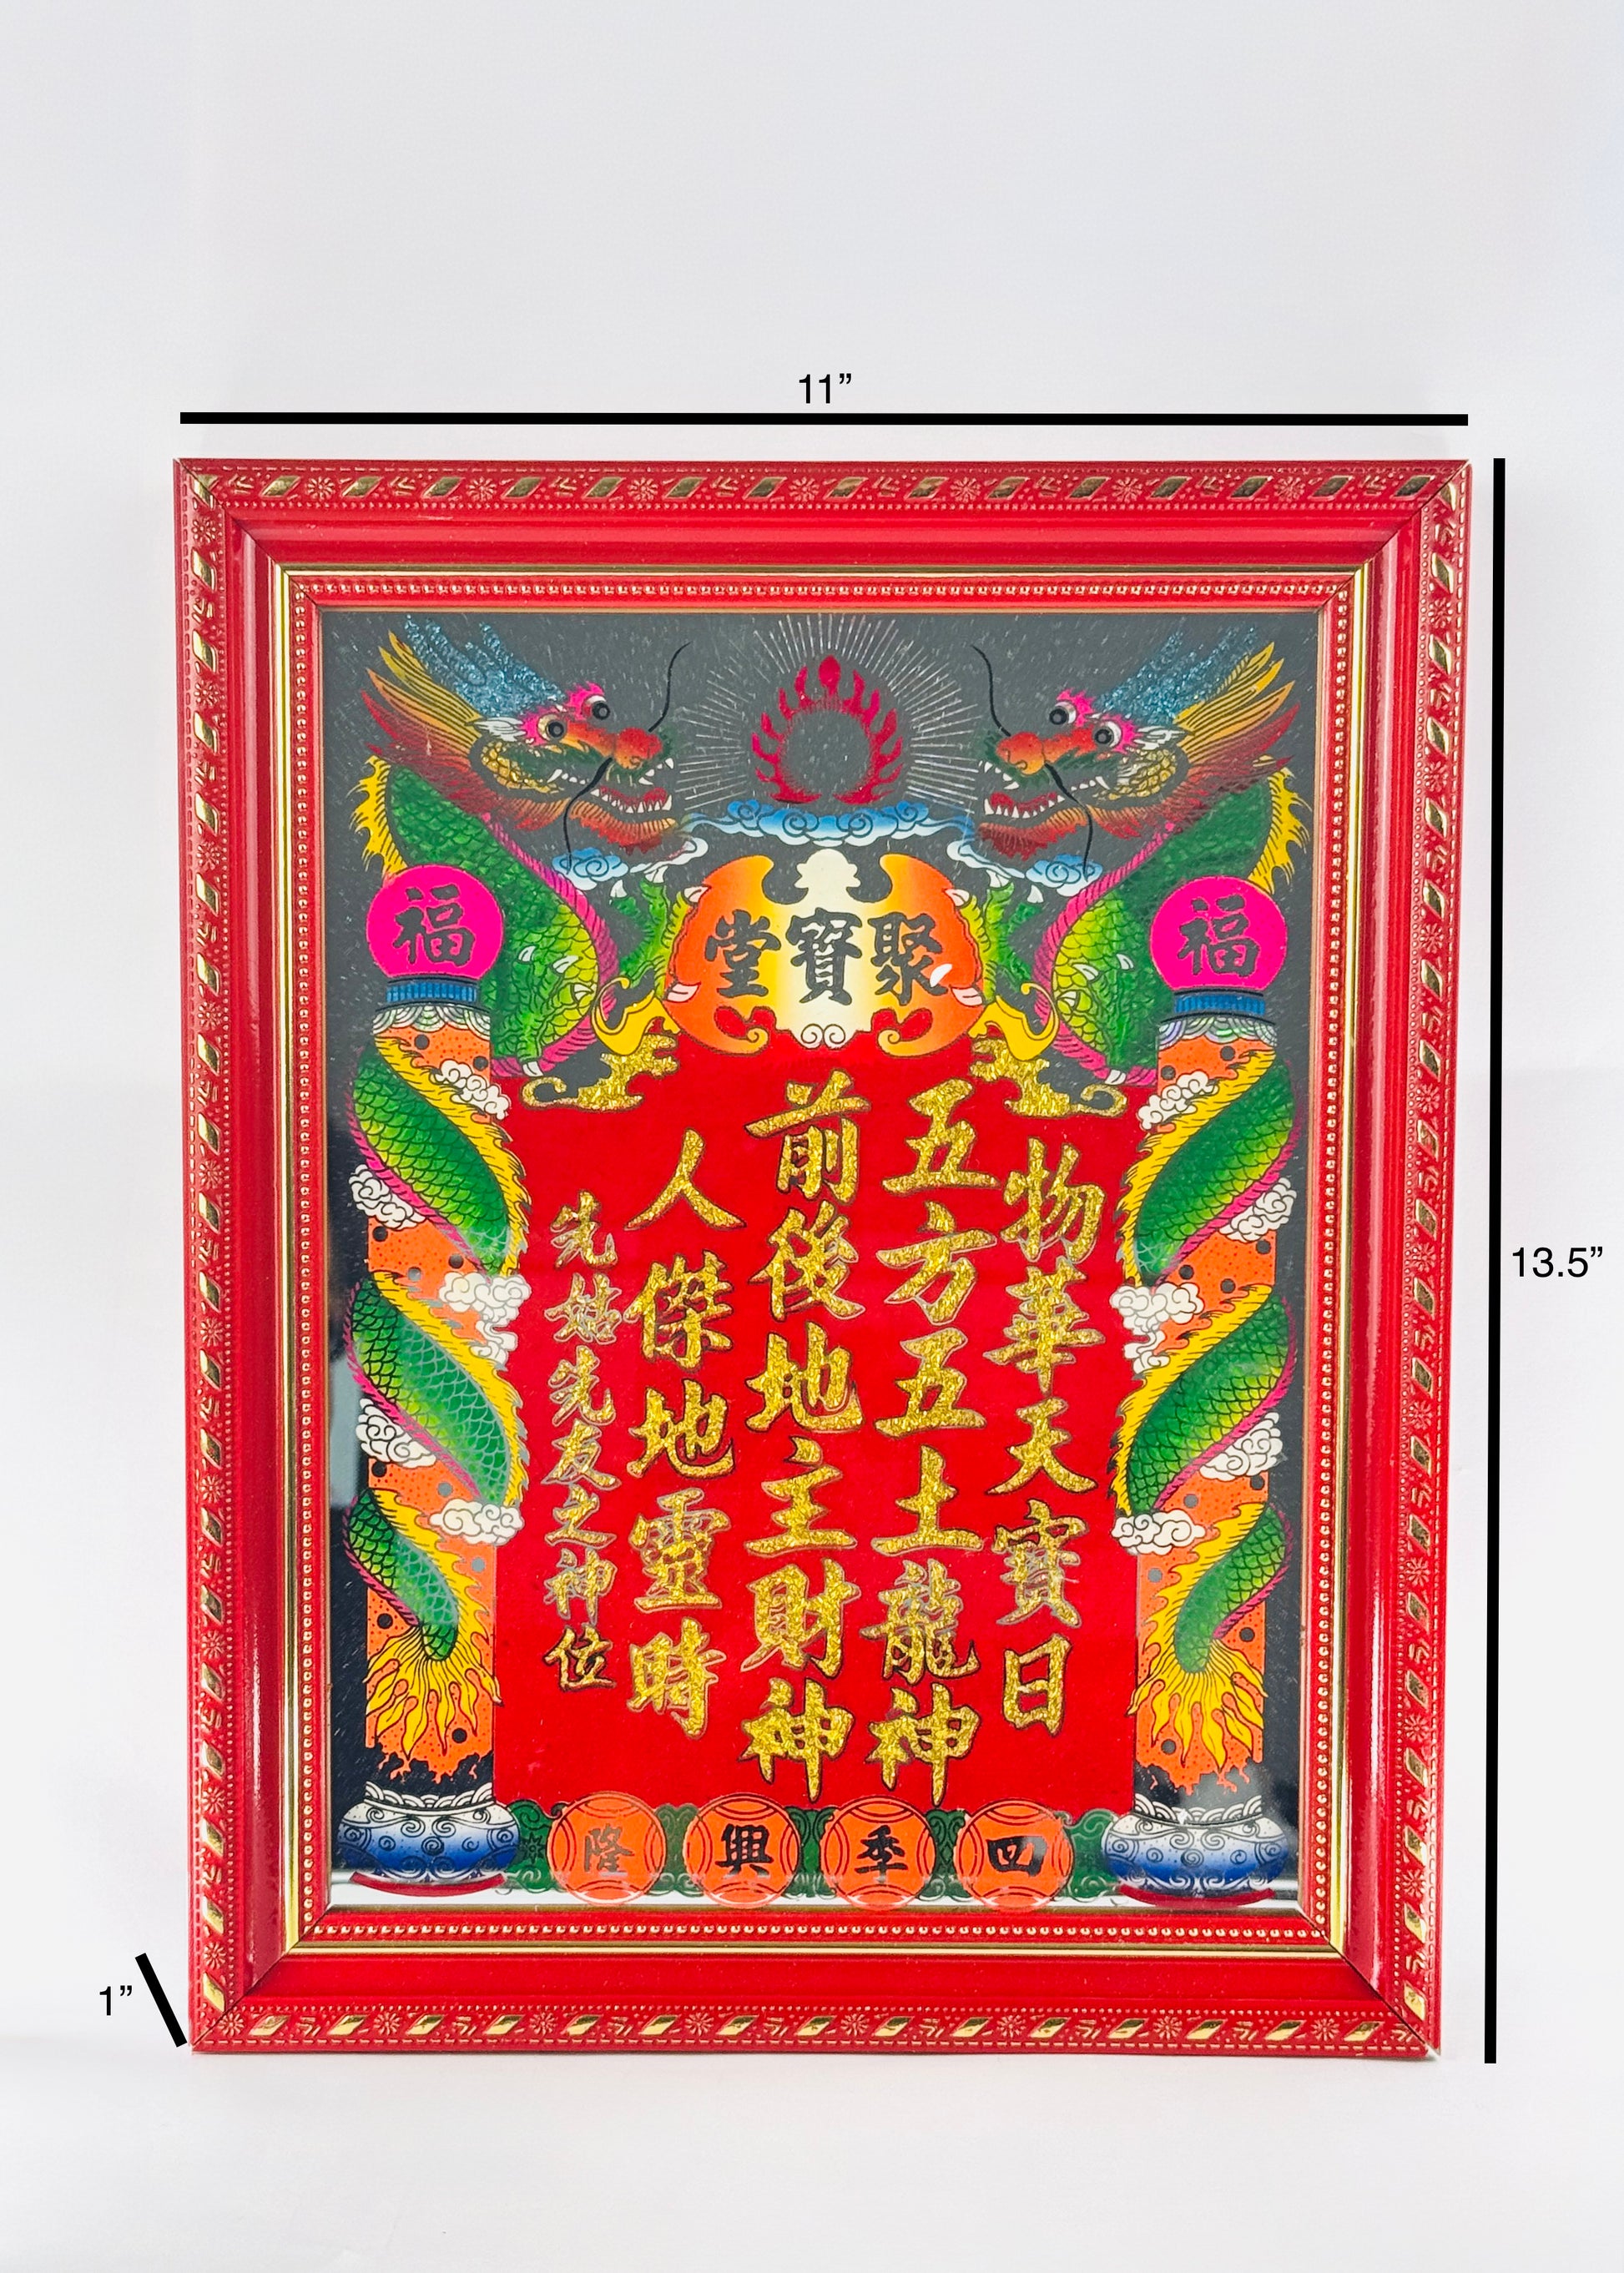 11”
13.5”
1”
聚寳堂
福
福
物華天寶日
五方五土龍神
前後地主財神
人傑地靈時
先姑先友之神位
四季興隆